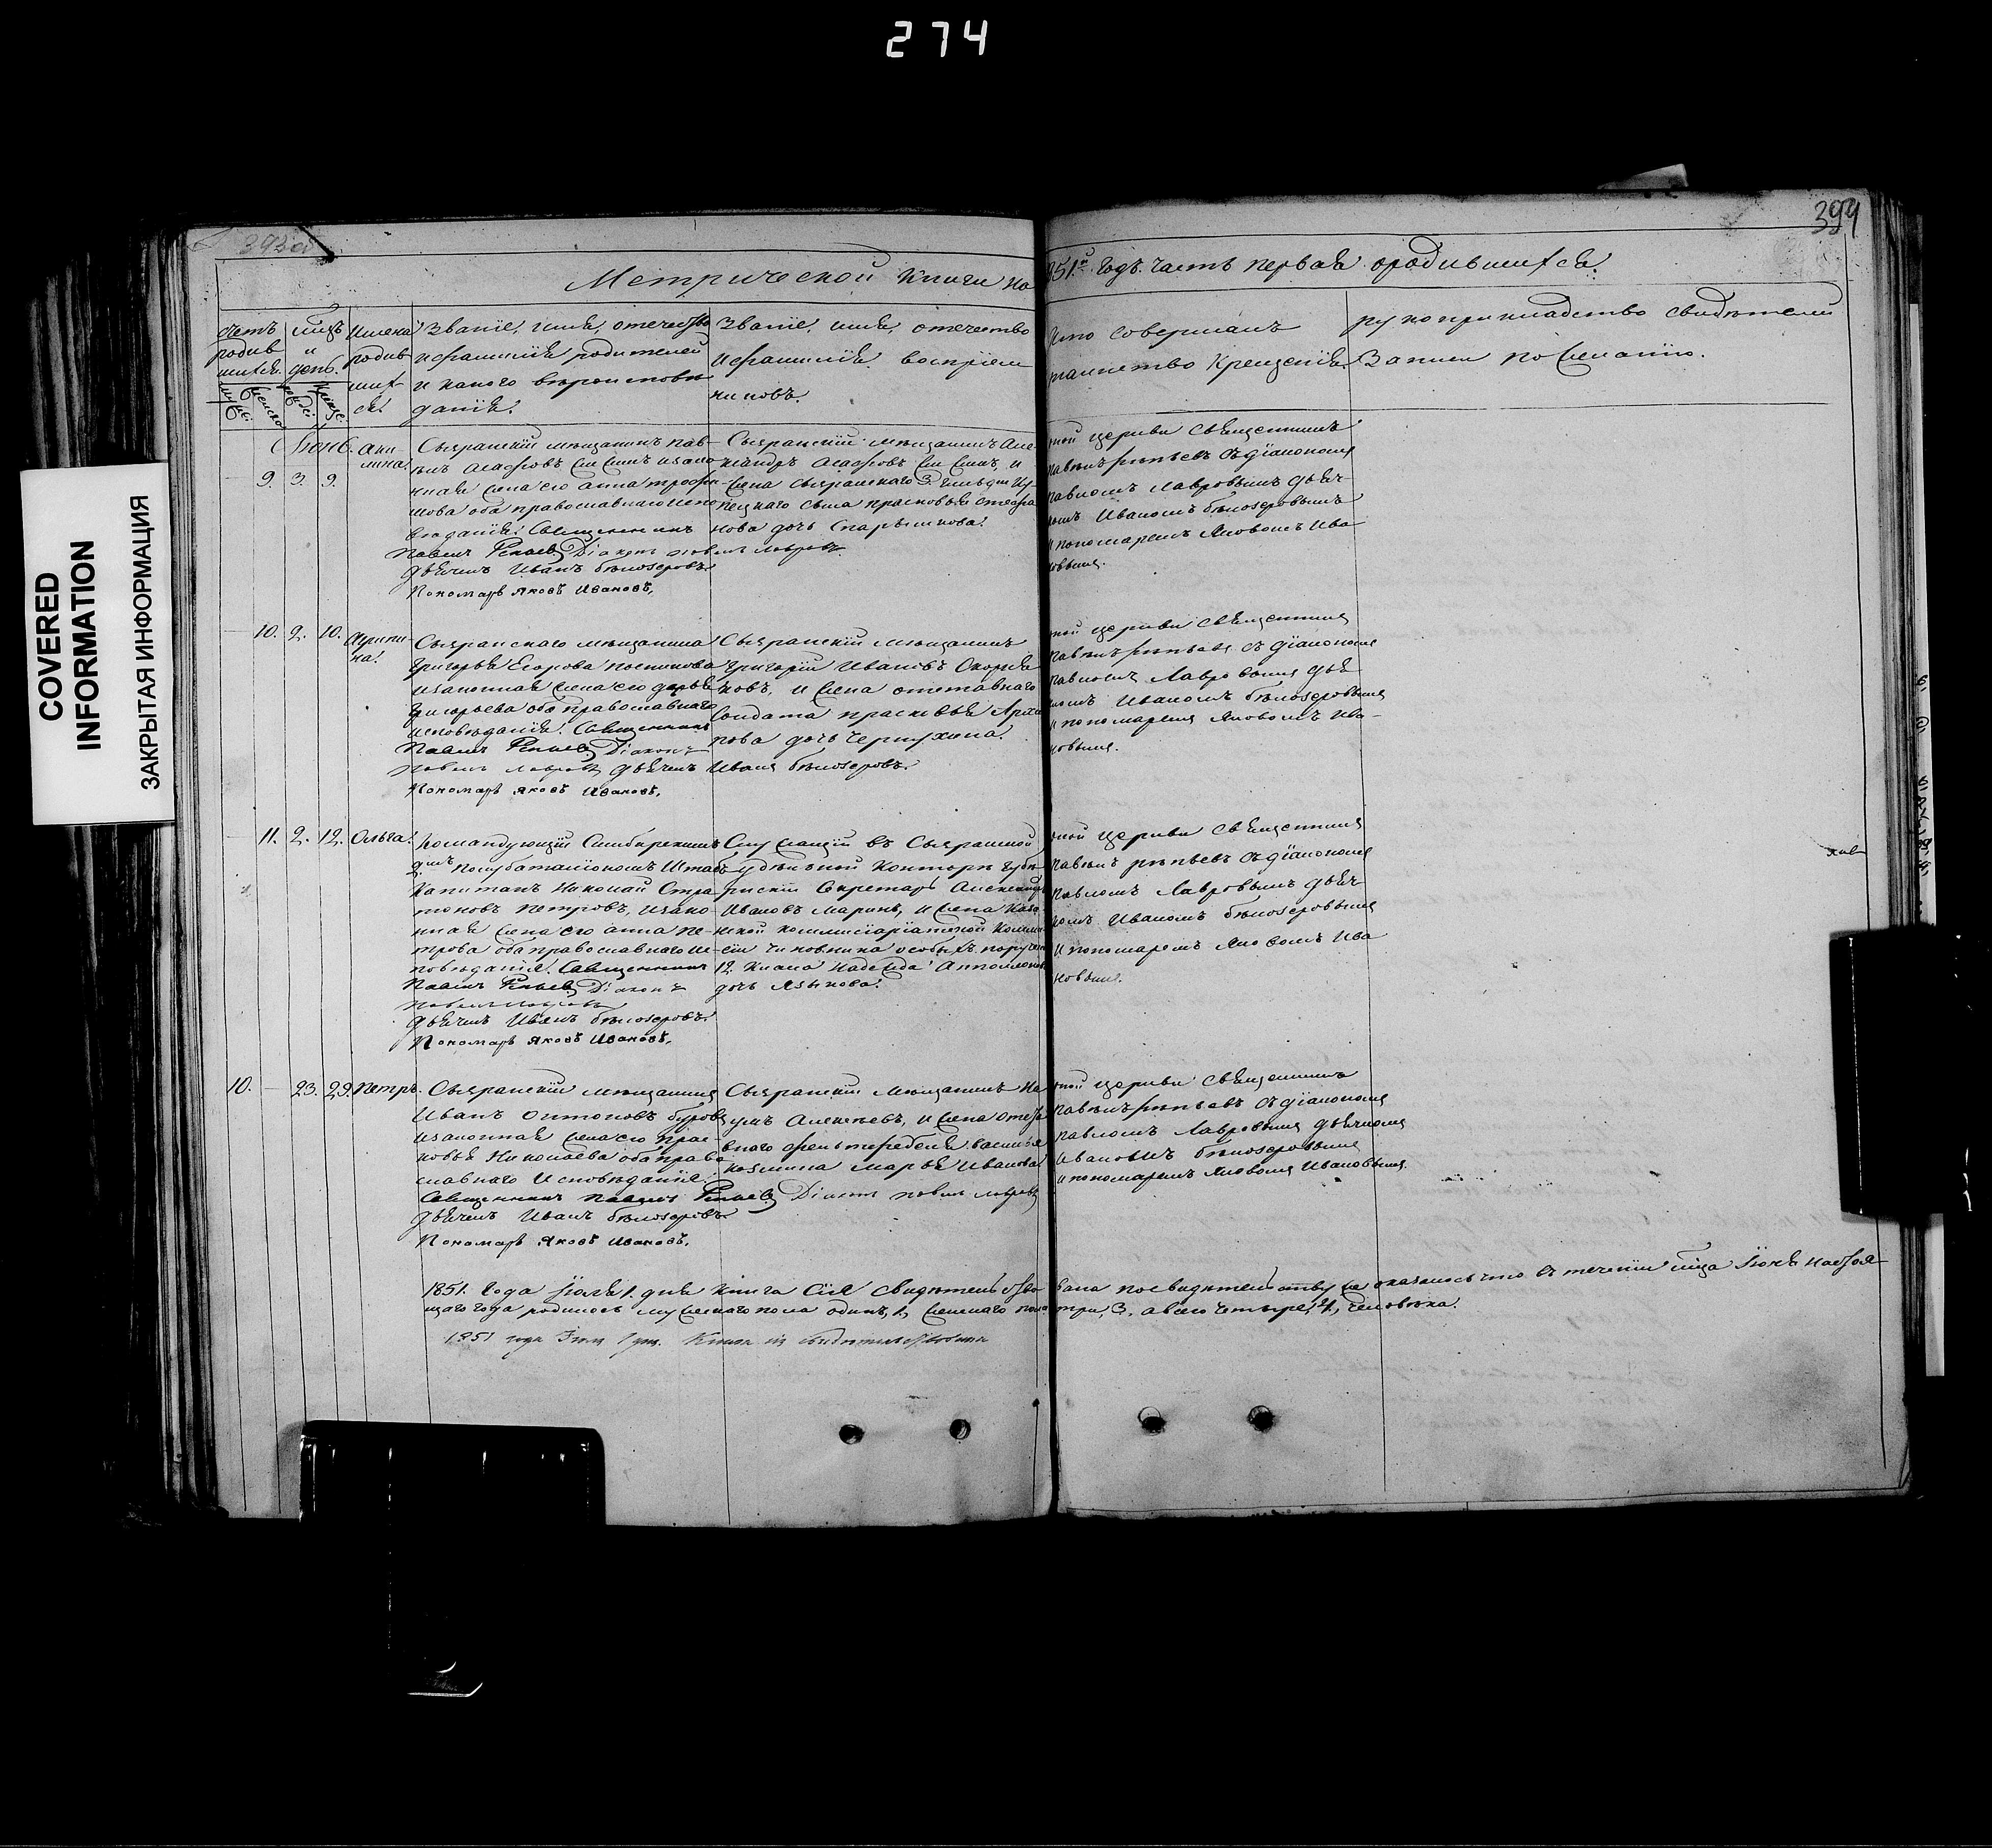 274
COVERED
INFORMATION
ЗАКРЫТАЯ ИНФОРМАЦИЯ
394
Метрической книги на 1851й годъ часть первая о родившихся.
Счетъ родившихся.
мцъ и день.
Имена родившихся.
Званіе, имя, отечество
и фамилія родителей
и какого вѣроисповѣ
данія.
Званіе, имя, отечество
и фамилія воспріем
никовъ.
Кто совершалъ
таинство крещенія.
Рукоприкладство свидѣтелей
записи по желанію.
Іюнь.
9. 3. 9.
Сызранскій мѣщанинъ Пав-
конная жена его Анна Трофи-
мова оба православнаго испо
вѣданія. Священникъ
Павелъ Репьевъ Діаконъ Павелъ Лавровъ
Дьячекъ Иванъ Бѣлозеровъ.
Пономарь Яковъ Ивановъ.
Сызранскій мѣщанинъ Але-
нова дочь
ной церкви священникъ
Павелъ Рѣпьевъ съ діакономъ
Павломъ Лавровымъ дьяч-
комъ Иваномъ Бѣлозеровымъ
и пономаремъ Яковомъ Ива
новымъ.
10. 2. 10. Агрипи-
на.
Сызранскаго мѣщанина
Григорья Егорова
законная жена его Дарья
Григорьева оба православнаго
исповѣданія. Священникъ
Павелъ Репьевъ Діаконъ
Павелъ Лавровъ Дьячекъ Иванъ Бѣлозеровъ.
Пономарь Яковъ Ивановъ.
Сызранскій мѣщанинъ
Григорій Ивановъ
ковъ, и жена отставнаго
солдата Прасковья Архи
пова дочь Чернухина.
ной церкви священникъ
Павелъ Рѣпьевъ съ діакономъ
Павломъ Лавровымъ дья
комъ Иваномъ Бѣлозеровымъ
и пономаремъ Яковомъ Ива-
новымъ.
11. 2. 12. Ольга.
Командующій Симбирскимъ
полубаталіономъ Штабъ
Капитанъ Николай Стра
тоновъ Петровъ, и зако-
нная жена его Анна Пе-
трова оба православнаго ис-
повѣданія. Священникъ
Павелъ Репьевъ Діаконъ
Павелъ Лавровъ
Дьячекъ Иванъ Бѣлозеровъ.
Пономарь Яковъ Ивановъ.
Служащій въ Сызранской
удѣльной конторѣ Губе
рнскій Секретарь Александръ
Ивановъ Маринъ, и жена Каза
нской коммисаріатской комми
сіи чиновника особыхъ порученій
12 класа Надежда Апполонова
дочь Языкова.
ной церкви священникъ
Павелъ Рѣпьевъ съ діакономъ
Павломъ Лавровымъ дьяч
комъ Иваномъ Бѣлозеровымъ
и пономаремъ Яковомъ Ива
новымъ.
10. 23. 29. Петръ.
Сызранскій мѣщанинъ
Иванъ Антоновъ Буровъ
и законная жена его Прас-
ковья Николаева оба право
славнаго исповѣданія.
Священникъ Павелъ Репьевъ Діаконъ Павелъ Лавровъ
Дьячекъ Иванъ Бѣлозеровъ.
Пономарь Яковъ Ивановъ.
Сызранскій мѣщанинъ На
умъ Алексѣевъ, и жена отста
внаго фельтфебеля Василья
Козмина Марья Иванова
ной церкви священникъ
Павелъ Рѣпьевъ съ діакономъ
Павломъ Лавровымъ дьячкомъ
Ивановымъ Бѣлозеровымъ
и пономаремъ Яковомъ Ивановымъ.
1851. Года Іюля 1. дня книга сія свидѣтельство вана по свидѣтельству же оказалось что въ теченіи мца Іюня настоя-
щаго года родилось мужескаго пола одинъ, 1, женскаго пола три, 3, а всего четыре, 4, человѣка.
1851 года Книга сія свидѣтельствована